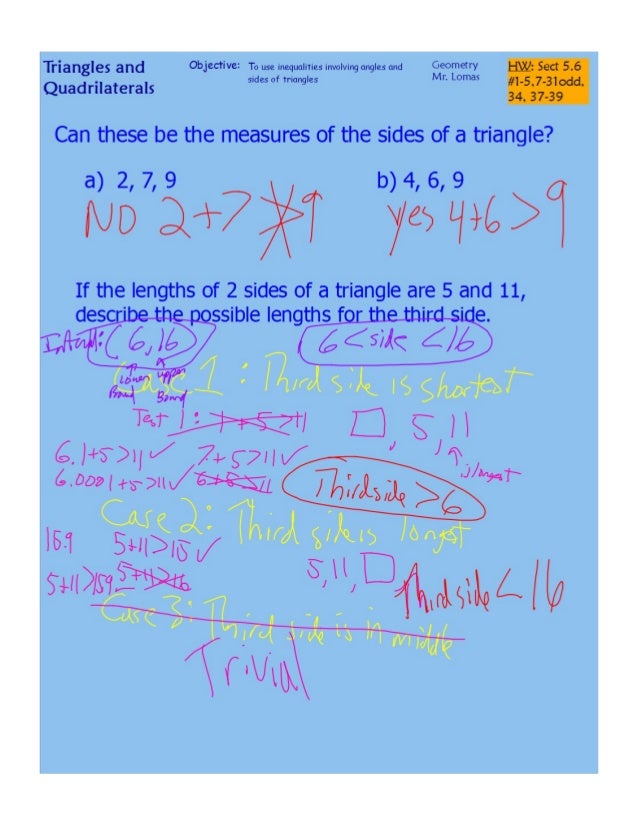 Triangles and
Quadrilaterals
Objective: To use inequalities involving angles and
sides of triangles
Geometry
Mr. Lomas
HW: Sect 5.6
#1-5,7-31odd,
34, 37-39
Can these be the measures of the sides of a triangle?
a) 2, 7, 9
b) 4, 6, 9
NO 2+7 > 9
yes 4+6 > 9
If the lengths of 2 sides of a triangle are 5 and 11,
describe the possible lengths for the third side.
(6,16)
6 < side < 16
Lower Bound
upper Bound
Case 1: Third side is shortest
Test 1: 1+5>11
□, 5, 11
is longest
6.1+5>11 ✓ 7+5>11 ✓
6.0001+5>11 ✓ 6+5>11
Third side > 6
Case 2: Third side is longest
15.9 5+11>15 ✓
5, 11, □
5+11>15.9 5+11>16
Third side < 16
Case 3: Third side is in middle
Trivial